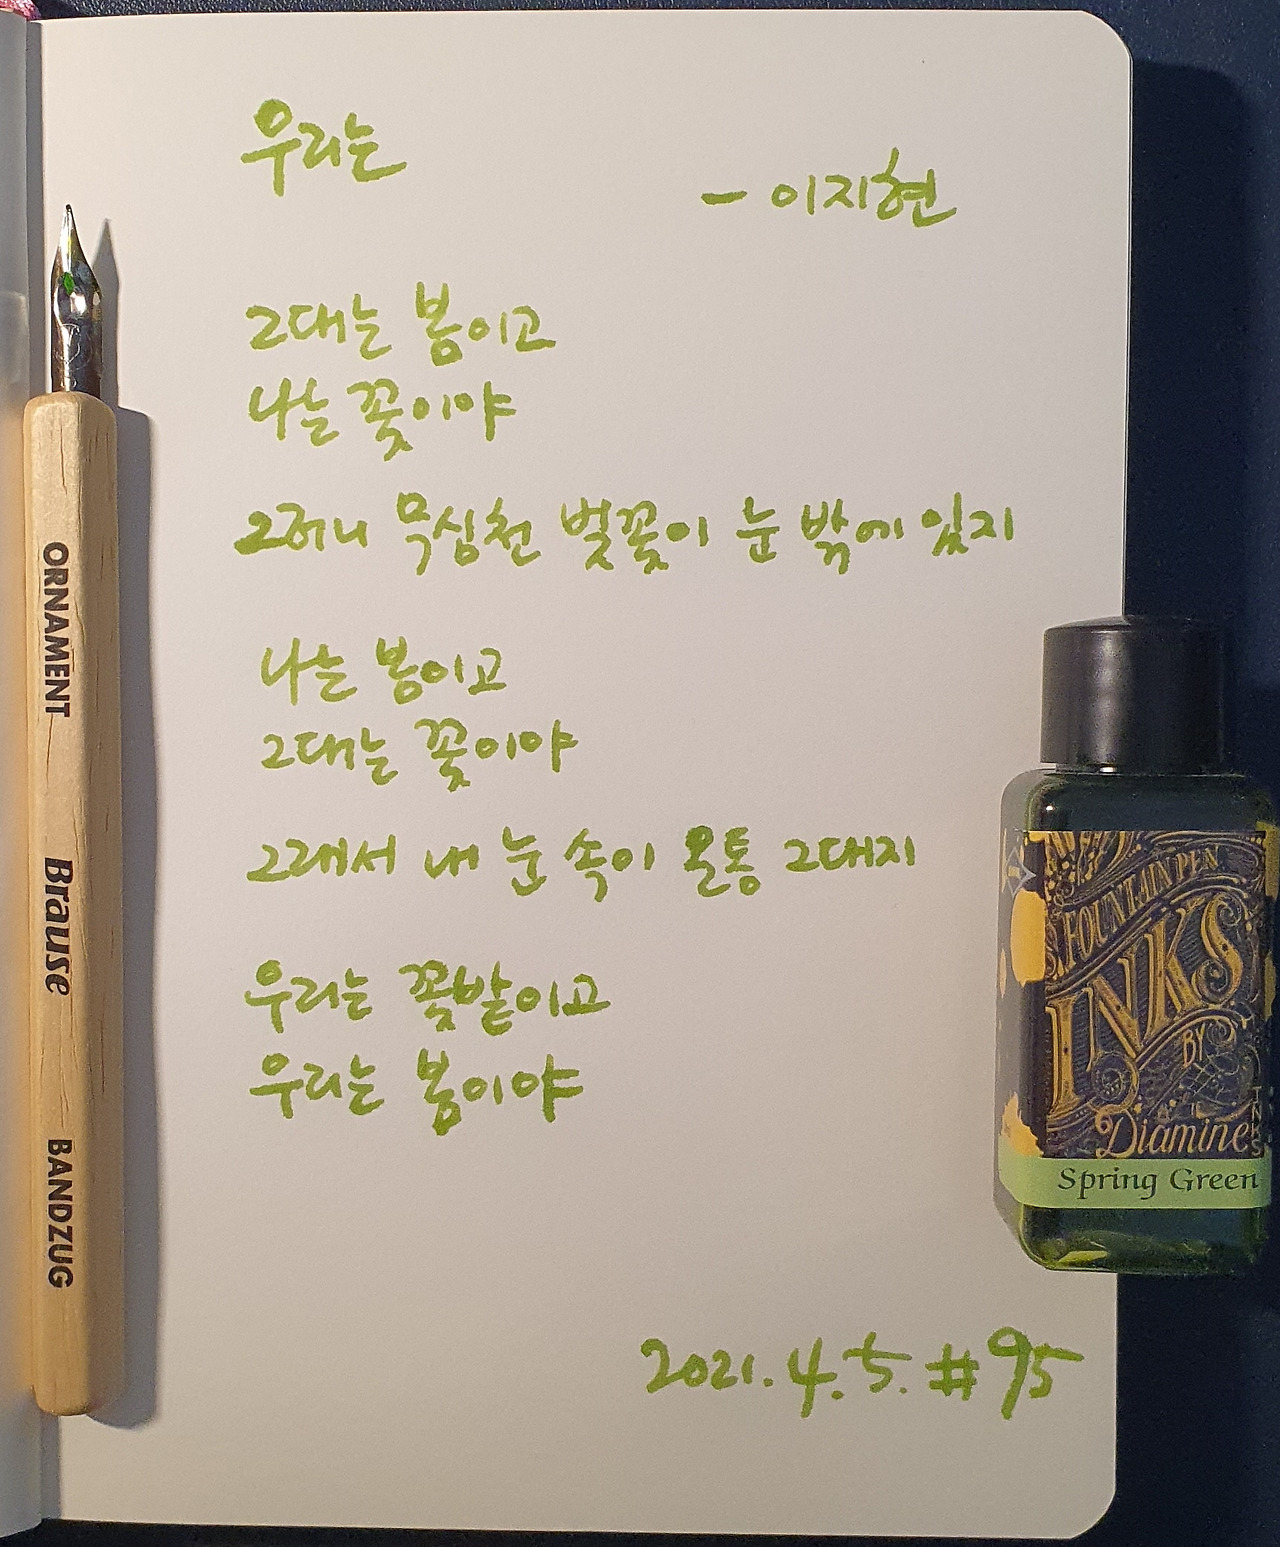 우리는
- 이지현
그대는 봄이고
나는 꽃이야
그러니 무심천 벚꽃이 눈 밖에 있지
나는 봄이고
그대는 꽃이야
그래서 내 눈 속이 온통 그대지
우리는 꽃밭이고
우리는 봄이야
2021. 4. 5. #95
ORNAMENT
Brause
BANDZUG
FOUNTAIN PEN
INKS
BY
Diamine
Spring Green